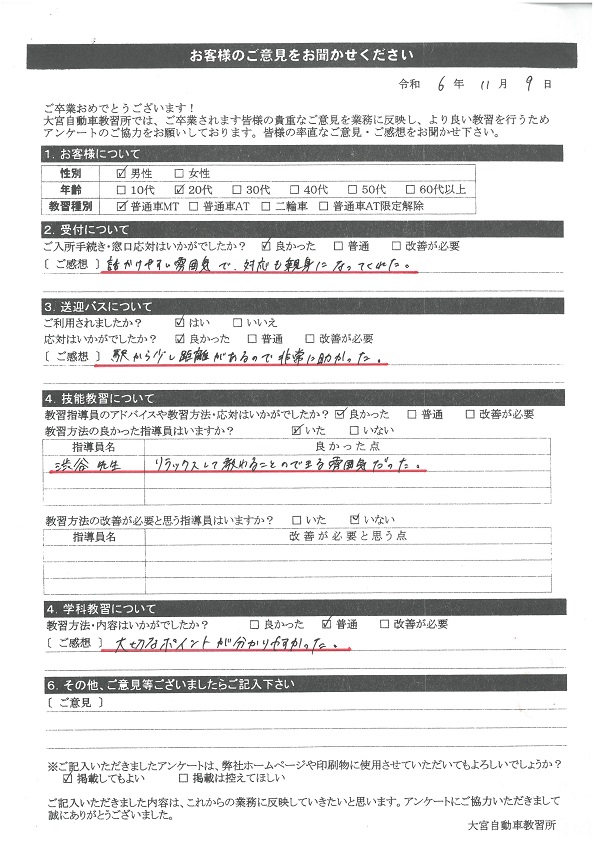 お客様のご意見をお聞かせください
令和 6 年 11 月 9 日
ご卒業おめでとうございます！
大宮自動車教習所では、ご卒業されます皆様の貴重なご意見を業務に反映し、より良い教習を行うため
アンケートのご協力をお願いしております。皆様の率直なご意見・ご感想をお聞かせ下さい。
1. お客様について
性別 ☑男性 □女性
年齢 □10代 ☑20代 □30代 □40代 □50代 □60代以上
教習種別 ☑普通車MT □普通車AT □二輪車 □普通車AT限定解除
2. 受付について
ご入所手続き・窓口応対はいかがでしたか？ ☑良かった □普通 □改善が必要
〔 ご感想 〕 話かけやすい雰囲気で、対応も親身になってくれた。
3. 送迎バスについて
ご利用されましたか？ ☑はい □いいえ
応対はいかがでしたか？ ☑良かった □普通 □改善が必要
〔 ご感想 〕 駅から少し距離があるので非常に助かった。
4. 技能教習について
教習指導員のアドバイスや教習方法・応対はいかがでしたか？ ☑良かった □普通 □改善が必要
教習方法の良かった指導員はいますか？ ☑いた □いない
指導員名 良かった点
渋谷 先生 リラックスして教わることのできる雰囲気だった。
教習方法の改善が必要と思う指導員はいますか？ □いた ☑いない
指導員名 改善が必要と思う点
4. 学科教習について
教習方法・内容はいかがでしたか？ □良かった ☑普通 □改善が必要
〔 ご感想 〕 大切なポイントが分かりやすかった。
6. その他、ご意見等ございましたらご記入下さい
〔 ご意見 〕
※ご記入いただきましたアンケートは、弊社ホームページや印刷物に使用させていただいてもよろしいでしょうか？
☑掲載してもよい □掲載は控えてほしい
ご記入いただきました内容は、これからの業務に反映していきたいと思います。アンケートにご協力いただきまして
誠にありがとうございました。
大宮自動車教習所